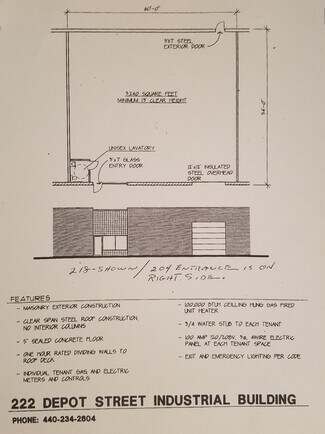 60'-0"
3'X7' STEEL
EXTERIOR DOOR
3240 SQUARE FEET
MINIMUM 13' CLEAR HEIGHT
54'-0"
UNISEX LAVATORY
3'x7' GLASS
ENTRY DOOR
12'x12' INSULATED
STEEL OVERHEAD
DOOR
218-SHOWN / 204 ENTRANCE IS ON
RIGHT SIDE.
FEATURES
- MASONRY EXTERIOR CONSTRUCTION
- CLEAR SPAN STEEL ROOF CONSTRUCTION,
NO INTERIOR COLUMNS
- 5" SEALED CONCRETE FLOOR
- ONE HOUR RATED DIVIDING WALLS TO
ROOF DECK
- INDIVIDUAL TENANT GAS AND ELECTRIC
METERS AND CONTROLS
- 100,000 BTUH CEILING HUNG GAS FIRED
UNIT HEATER
- 3/4 WATER STUB TO EACH TENANT
- 100 AMP 120/208V, 3ø, 4WIRE ELECTRIC
PANEL AT EACH TENANT SPACE
- EXIT AND EMERGENCY LIGHTING PER CODE
222 DEPOT STREET INDUSTRIAL BUILDING
PHONE: 440-234-2604